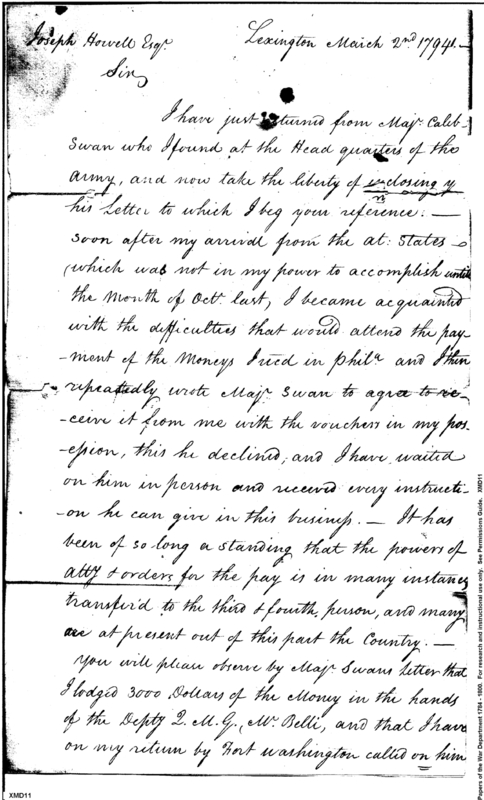 Joseph Howell Esqr. Lexington March 2nd 1794.
Sir,
I have just returned from Majr. Caleb
Swan who I found at the Head quarters of the
Army, and now take the liberty of inclosing y
his Letter to which I beg your reference: —
Soon after my arrival from the at: States
(which was not in my power to accomplish until
the Month of Octr. last, I became acquainted
with the difficulties that would attend the pay-
-ment of the Moneys I rec'd in Phila. and I then
repeatedly wrote Majr. Swan to agree to re-
-ceive it from me with the vouchers in my pos-
-session, this he declined, and I have waited
on him in person and received every instructi-
-on he can give in this business. — It has
been of so long a standing that the powers of
atty & orders for the pay is in many instances
transfer'd to the third & fourth person, and many
are at present out of this part the Country. —
You will please observe by Majr. Swans letter that
I lodged 3000 Dollars of the Money in the hands
of the Depty Q. M. G., Mr. Belli, and that I have
on my return by Fort Washington called on him
XMD11
Papers of the War Department 1784 - 1800. For research and instructional use only. See Permissions Guide. XMD11